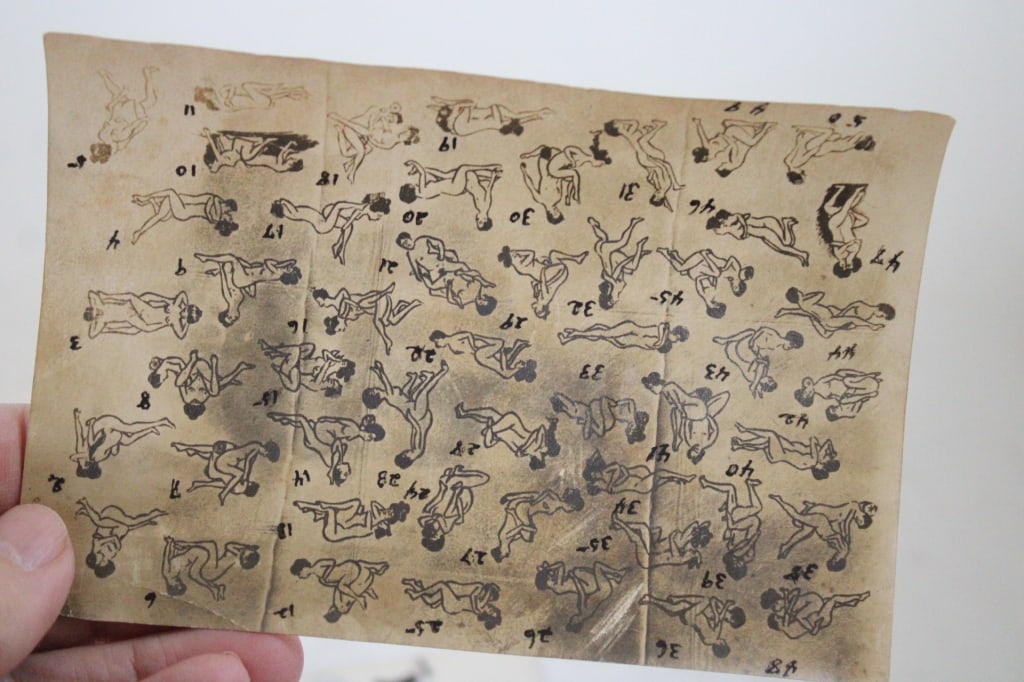 48
36
26
25
12
6
38
39
35
27
13
34
24
14
7
2
40
41
28
23
42
15
8
43
33
22
44
3
29
16
32
45
21
9
47
17
4
30
20
46
31
18
10
5
19
50
11
49